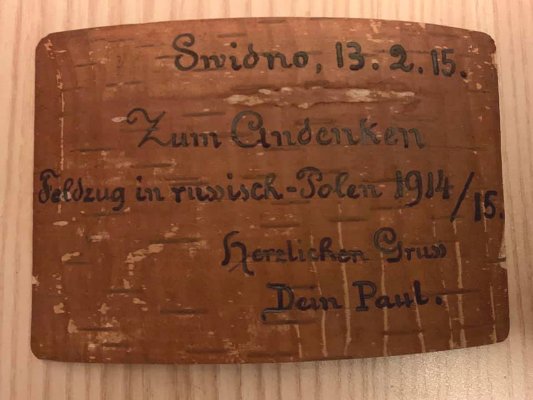 Swidno, 13.2.15.
Zum Andenken
Feldzug in russisch-Polen 1914/15.
Herzlichen Gruss
Dein Paul.